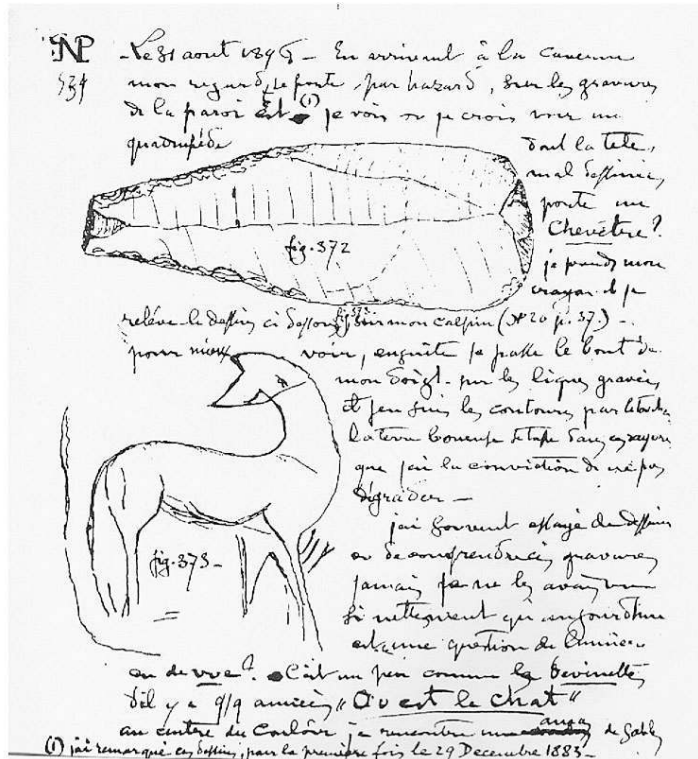 NP _ Le 31 aout 1896 _ En arrivant à la caverne
534 mon regard se porte, par hazard, sur les gravures
de la paroi Est (1) je vois ou je crois voir un
quadrupède dont la tete,
mal dessinée,
porte un
Chevêtre?
je prends mon
crayon et je
fig. 372
relève le dessin ci dessous fig. 373 sur mon calepin (N° 20 p. 37.) _
pour mieux voir, ensuite je passe le bout de
mon doigt sur les lignes gravées
et j'en suis les contours par
la terre
que j'ai la conviction de ne pas
dégrader _
j'ai souvent essayé de dessiner
ou de comprendre ces gravures
jamais je ne les avais vues
si nettement qu'aujourd'hui
est une question de lumière
fig. 373 _
ou de vue? C'est un peu comme les devinettes
d'il y a q/q années "Ou est le chat"
au centre du couloir je rencontre une de Sable
(1) j'ai remarqué ces dessins, pour la première fois le 29 Decembre 1883 _